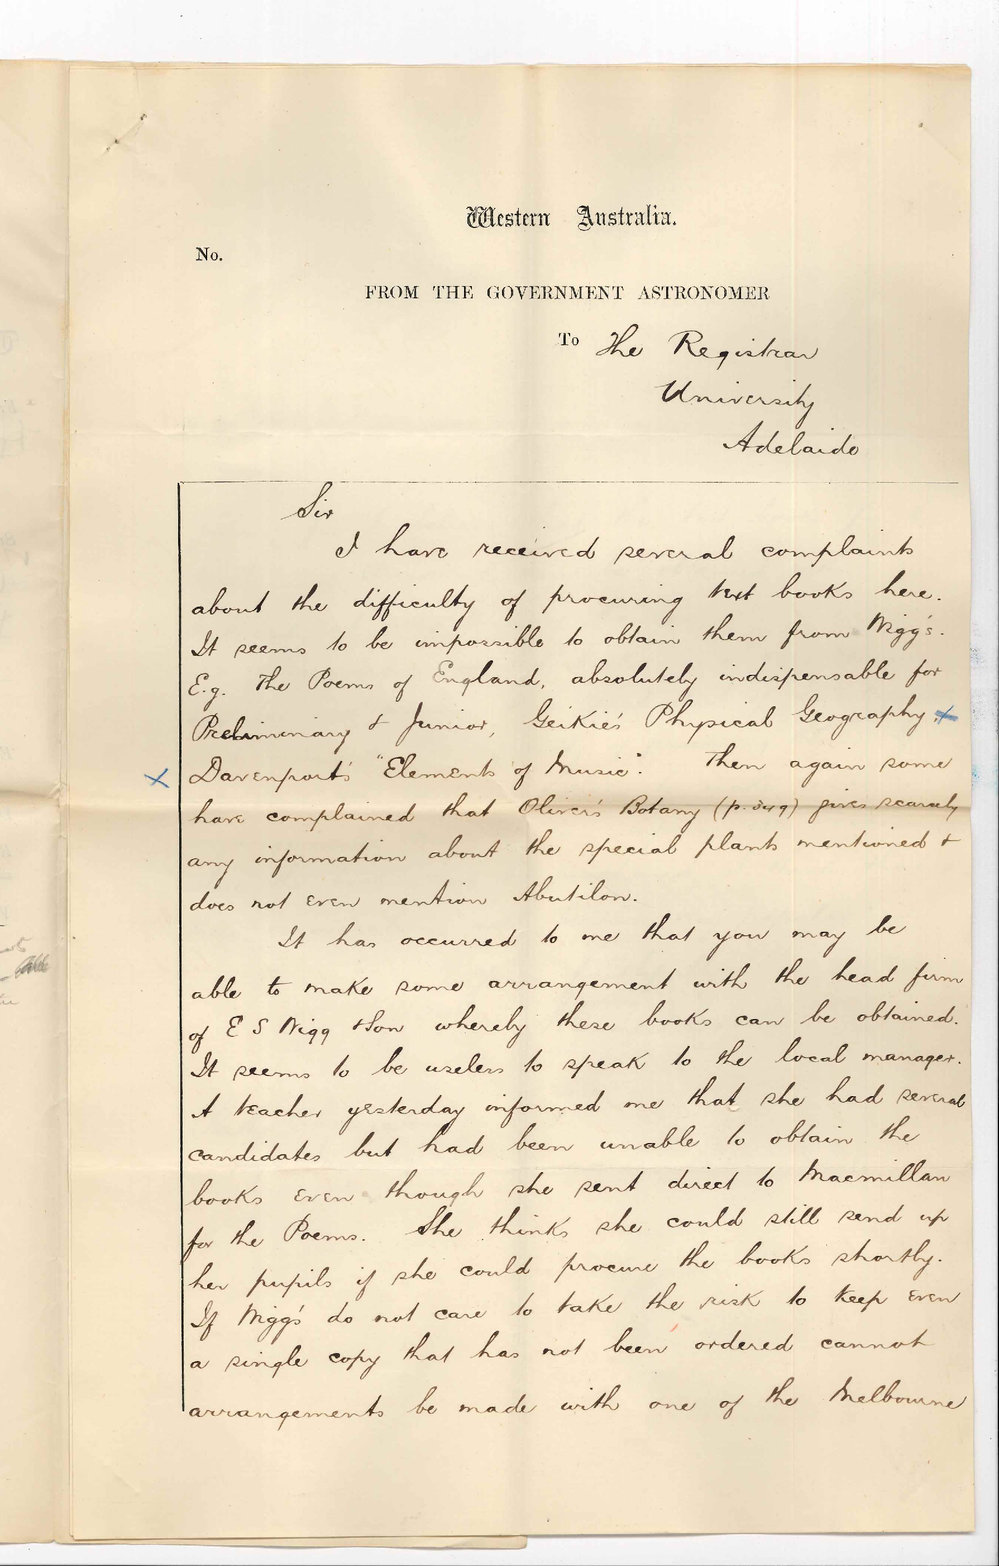 Western Australia.
No.
FROM THE GOVERNMENT ASTRONOMER
To The Registrar
University
Adelaide
Sir
I have received several complaints
about the difficulty of procuring text books here.
It seems to be impossible to obtain them from Wigg's.
E.g. The Poems of England, absolutely indispensable for
Preliminary & Junior, Geikie's Physical Geography, x
x Davenport's "Elements of Music". Then again some
have complained that Oliver's Botany (p. 349) gives scarcely
any information about the special plants mentioned &
does not even mention Abutilon.
It has occurred to me that you may be
able to make some arrangement with the head firm
of E S Wigg & Son whereby these books can be obtained.
It seems to be useless to speak to the local manager.
A teacher yesterday informed me that she had several
candidates but had been unable to obtain the
books even though she sent direct to Macmillan
for the Poems. She thinks she could still send up
her pupils if she could procure the books shortly.
If Wigg's do not care to take the risk to keep even
a single copy that has not been ordered cannot
arrangements be made with one of the Melbourne